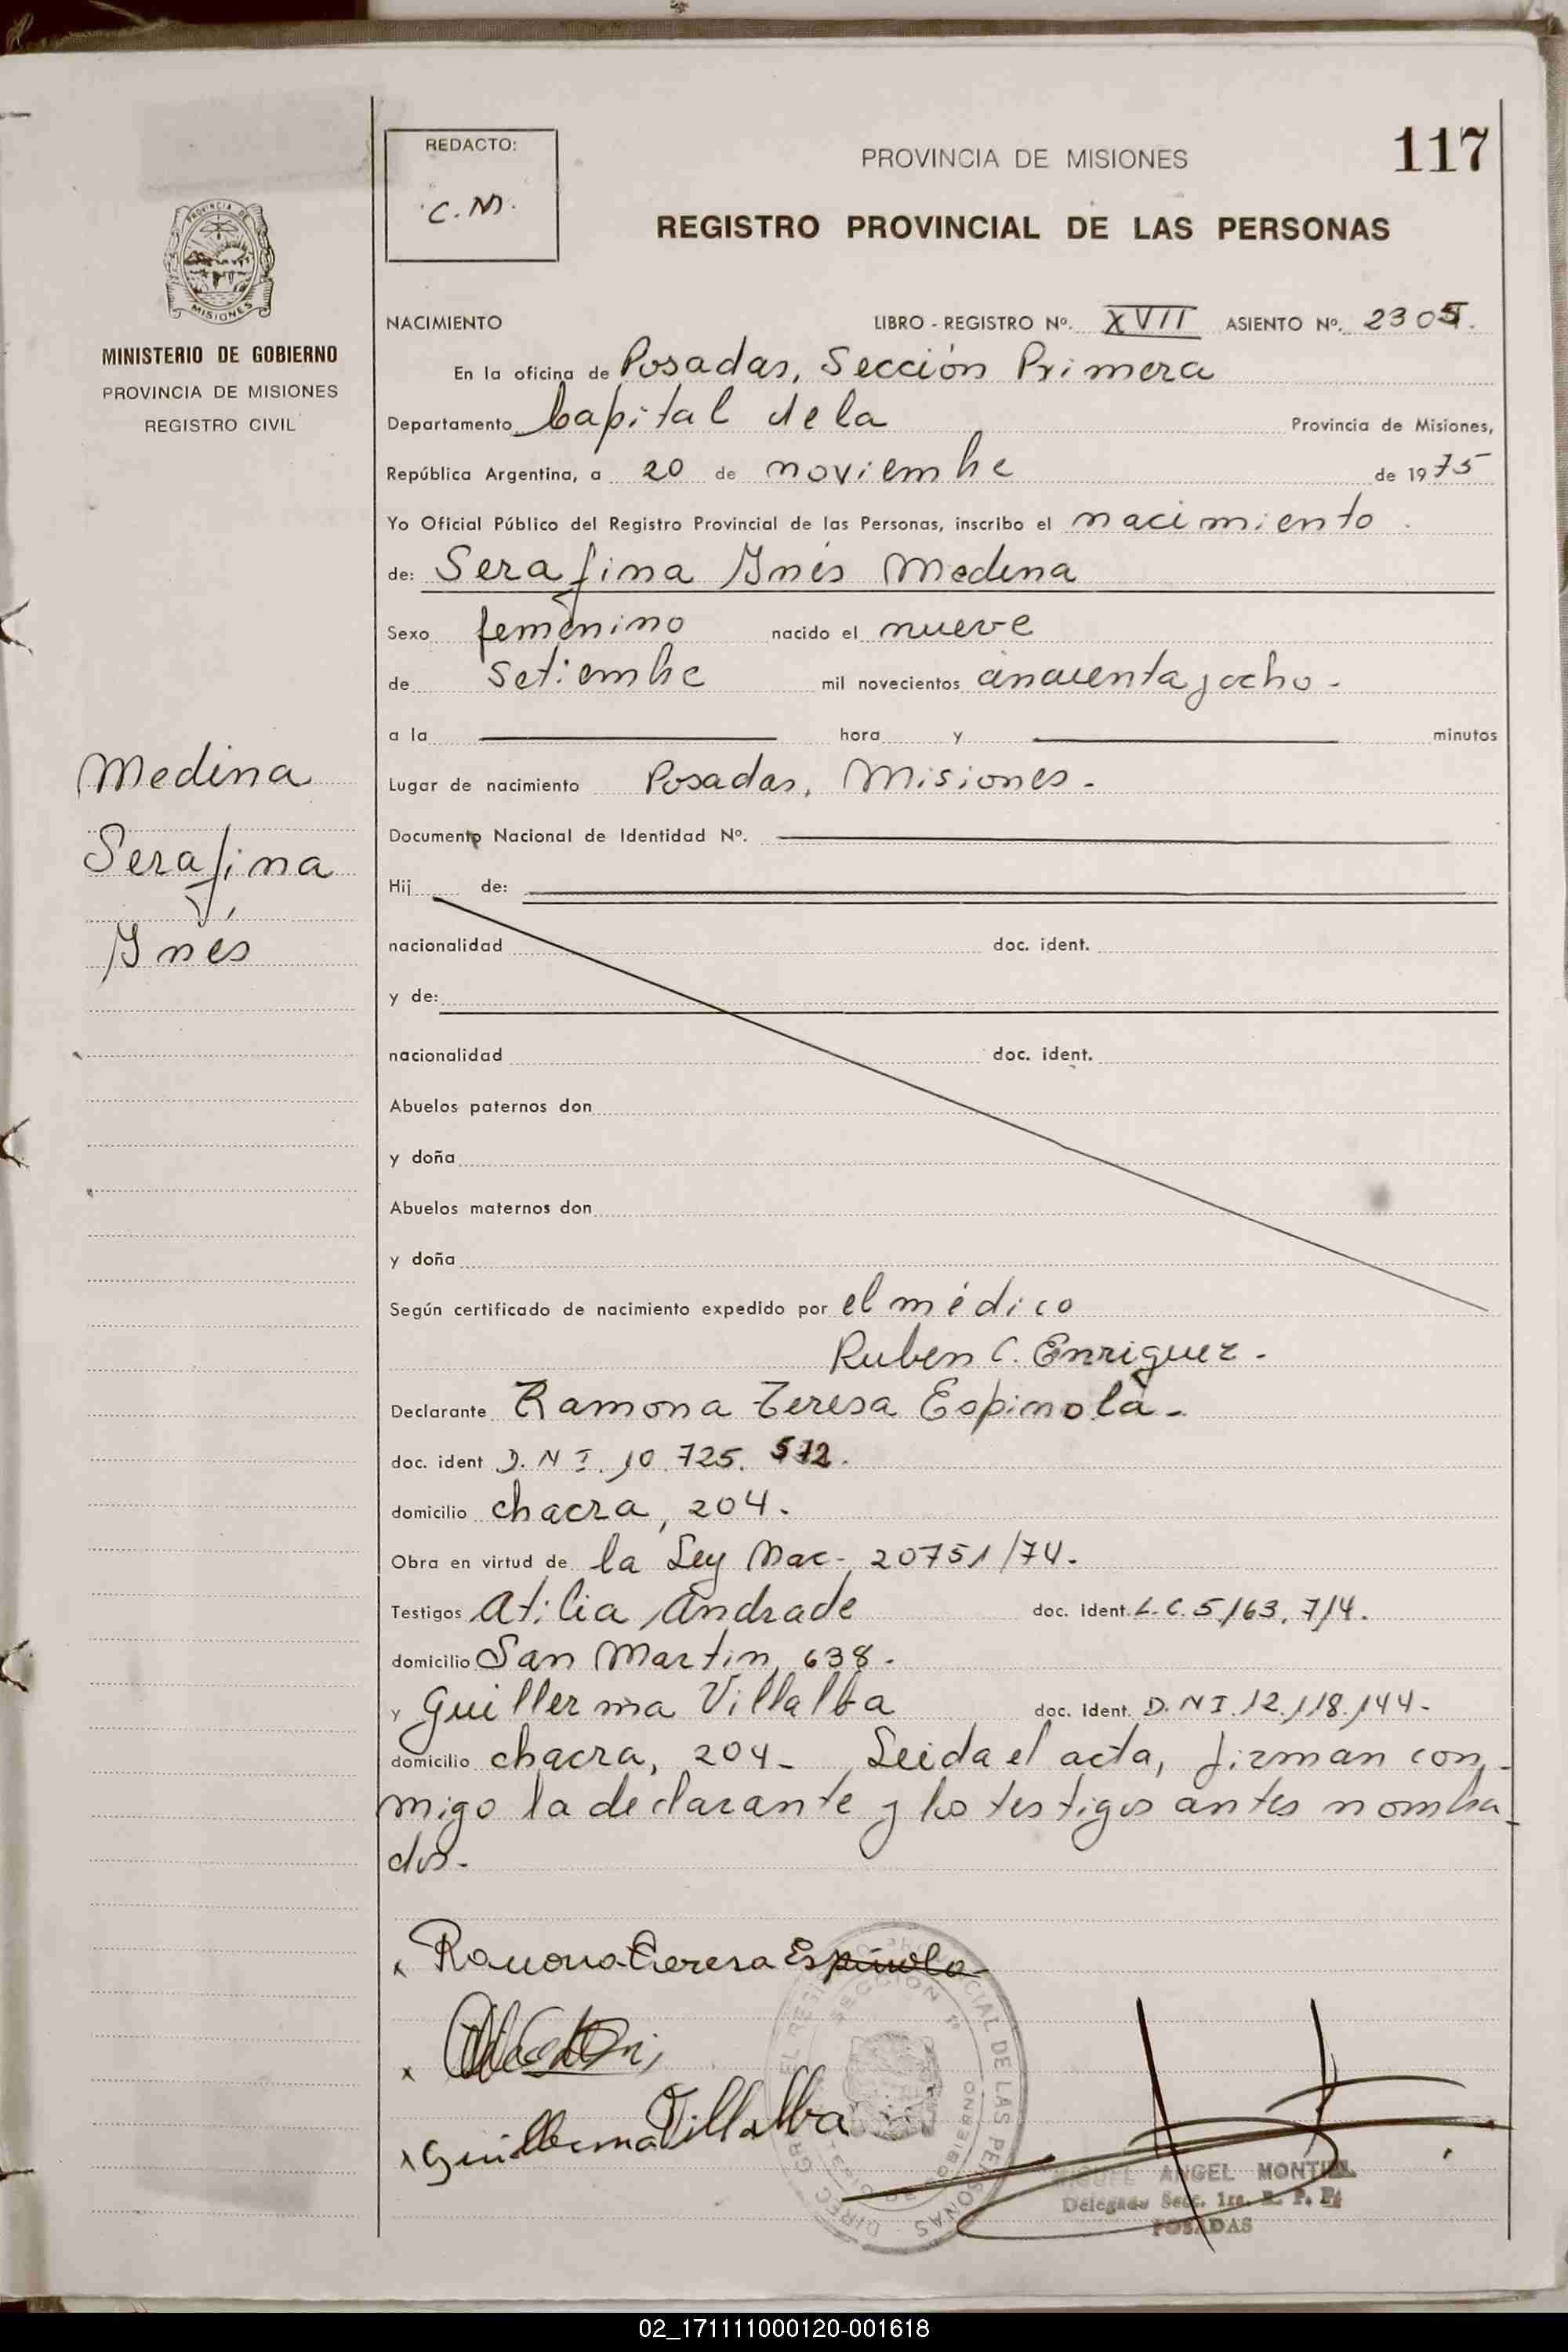 117
REDACTO:
C.M.
PROVINCIA DE MISIONES
REGISTRO PROVINCIAL DE LAS PERSONAS
PROVINCIA DE
MISIONES
MINISTERIO DE GOBIERNO
PROVINCIA DE MISIONES
REGISTRO CIVIL
NACIMIENTO LIBRO - REGISTRO Nº. XVII ASIENTO Nº. 2305.
En la oficina de Posadas, Sección Primera
Departamento Capital de la Provincia de Misiones,
República Argentina, a 20 de noviembre de 1975
Yo Oficial Público del Registro Provincial de las Personas, inscribo el nacimiento.
de: Serafina Ynés Medina
Sexo femenino nacido el nueve
de Setiembre mil novecientos cincuenta y ocho -
a la hora y minutos
Medina
Serafina
Ynés
Lugar de nacimiento Posadas, Misiones -
Documento Nacional de Identidad Nº.
Hij de:
nacionalidad doc. ident.
y de:
nacionalidad doc. ident.
Abuelos paternos don
y doña
Abuelos maternos don
y doña
Según certificado de nacimiento expedido por el médico
Ruben C. Enriquez -
Declarante Ramona Teresa Espinola -
doc. ident D.N.I. 10.725.512.
domicilio chacra, 204.
Obra en virtud de la Ley Nac- 20751/74.
Testigos Atilia Andrade doc. ident. L.C. 5.163.714.
domicilio San Martin 638.
y Guillerma Villalba doc. ident. D.N.I. 12.118.144-
domicilio chacra, 204- Leida el acta, firman con-
migo la declarante y los testigos antes nombra-
dos.-
x Ramona Teresa Espinola
x
x Guillerma Villalba
SECCION 1º
DE LAS PERSONAS
MIGUEL ANGEL MONTIEL
Delegado Secc. 1ra. R. P. P.
POSADAS
02_171111000120-001618